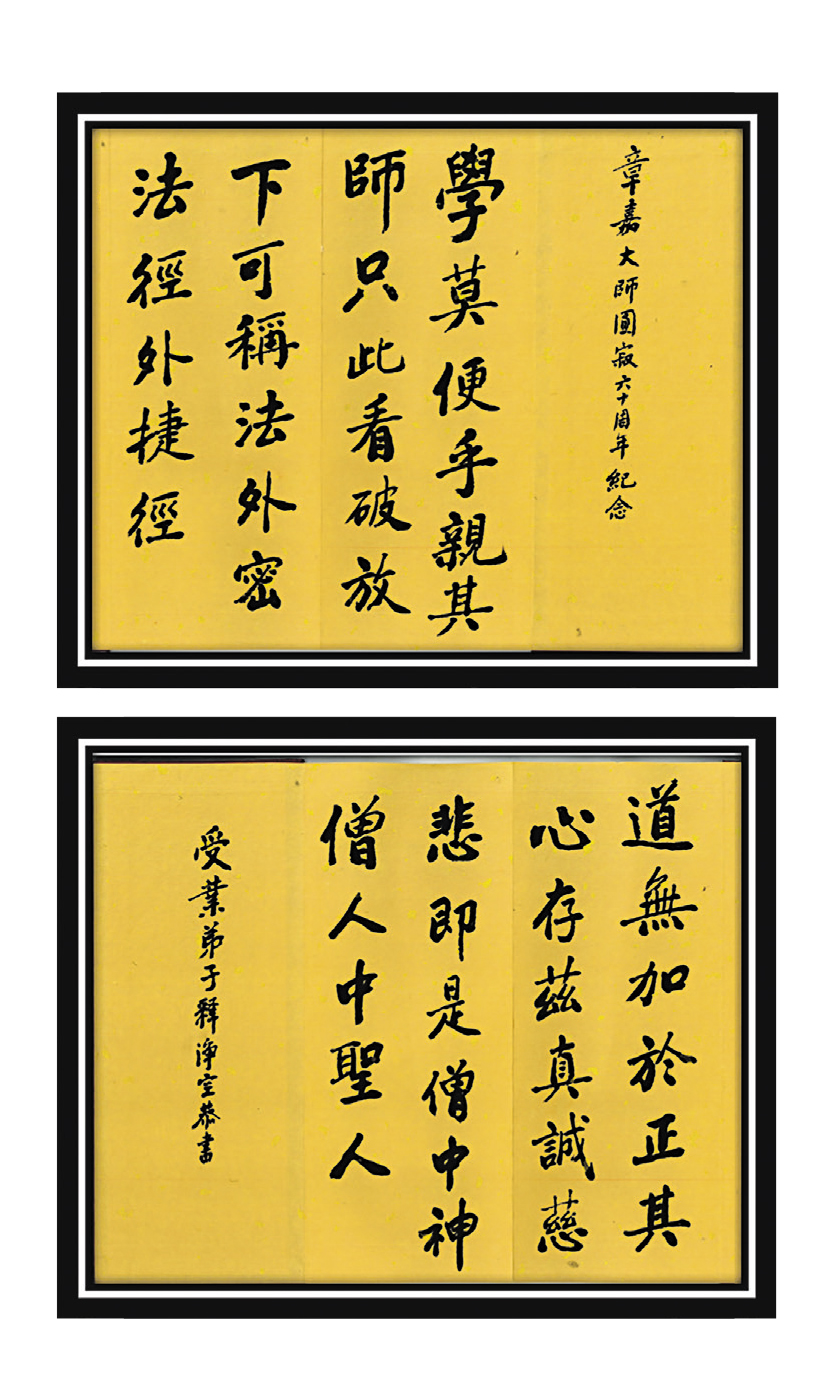 章嘉大師圓寂六十周年紀念
學莫便乎親其
師只此看破放
下可稱法外密
法徑外捷徑
道無加於正其
心存茲真誠慈
悲即是僧中神
僧人中聖人
受業弟子釋淨空恭書